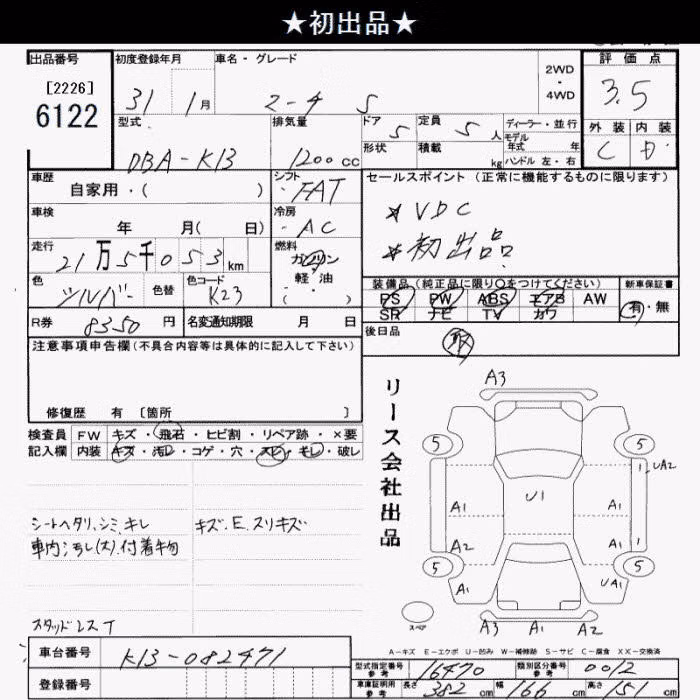 ★初出品★
出品番号
[2226]
6122
初度登録年月
31 1月
車名・グレード
マーチ S
2WD
・
4WD
評価点
3.5
外装 内装
C D
型式
DBA-K13
排気量
1200cc
ドア 5
定員 5人
ディーラー・並行
モデル
年式 年
形状
積載 kg
ハンドル 左・右
車歴
自家用・( )
シフト
FAT
セールスポイント (正常に機能するものに限ります)
* VDC
* 初出品
車検
年 月( 日)
冷房
AC
走行
21万5千053km
燃料
ガソリン
軽油
( )
色
シルバー
色替
色コード
K23
装備品(純正品に限り○をつけてください)
PS PW ABS エアB AW
SR ナビ TV カワ
新車保証書
有・無
R券 8350円
名変通知期限 月 日
後日品
取
注意事項申告欄(不具合内容等は具体的に記入して下さい)
修復歴 有 [箇所 ]
検査員 FW キズ・飛石・ヒビ割・リペア跡・×要
記入欄 内装 キズ・汚レ・コゲ・穴・スレ・キレ・破レ
シートヘタリ、シミ、キレ
キズ、E、スリキズ
車内汚れ(大)、付着物
スタッドレスT
リース会社出品
A3
5 5
UA2
1
U1
A1 A1
A2 A1
1
5 5
A1 UA1
スペア
A3 A1 A2
A-キズ E-エクボ U-凹み W-補修跡 S-サビ C-腐食 XX-交換済
車台番号 K13-082471
登録番号
型式指定番号
参考
16470
類別区分番号
参考
0012
車庫証明用
参考
長さ 382cm 幅 166cm 高さ 151cm